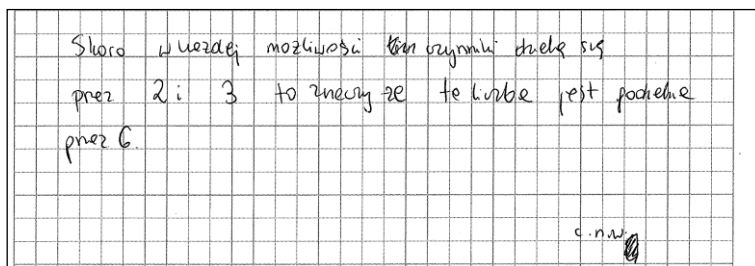 Skoro w każdej możliwości czynniki dzielą się
przez 2 i 3 to znaczy że ta liczba jest podzielna
przez 6.
c.n.w.